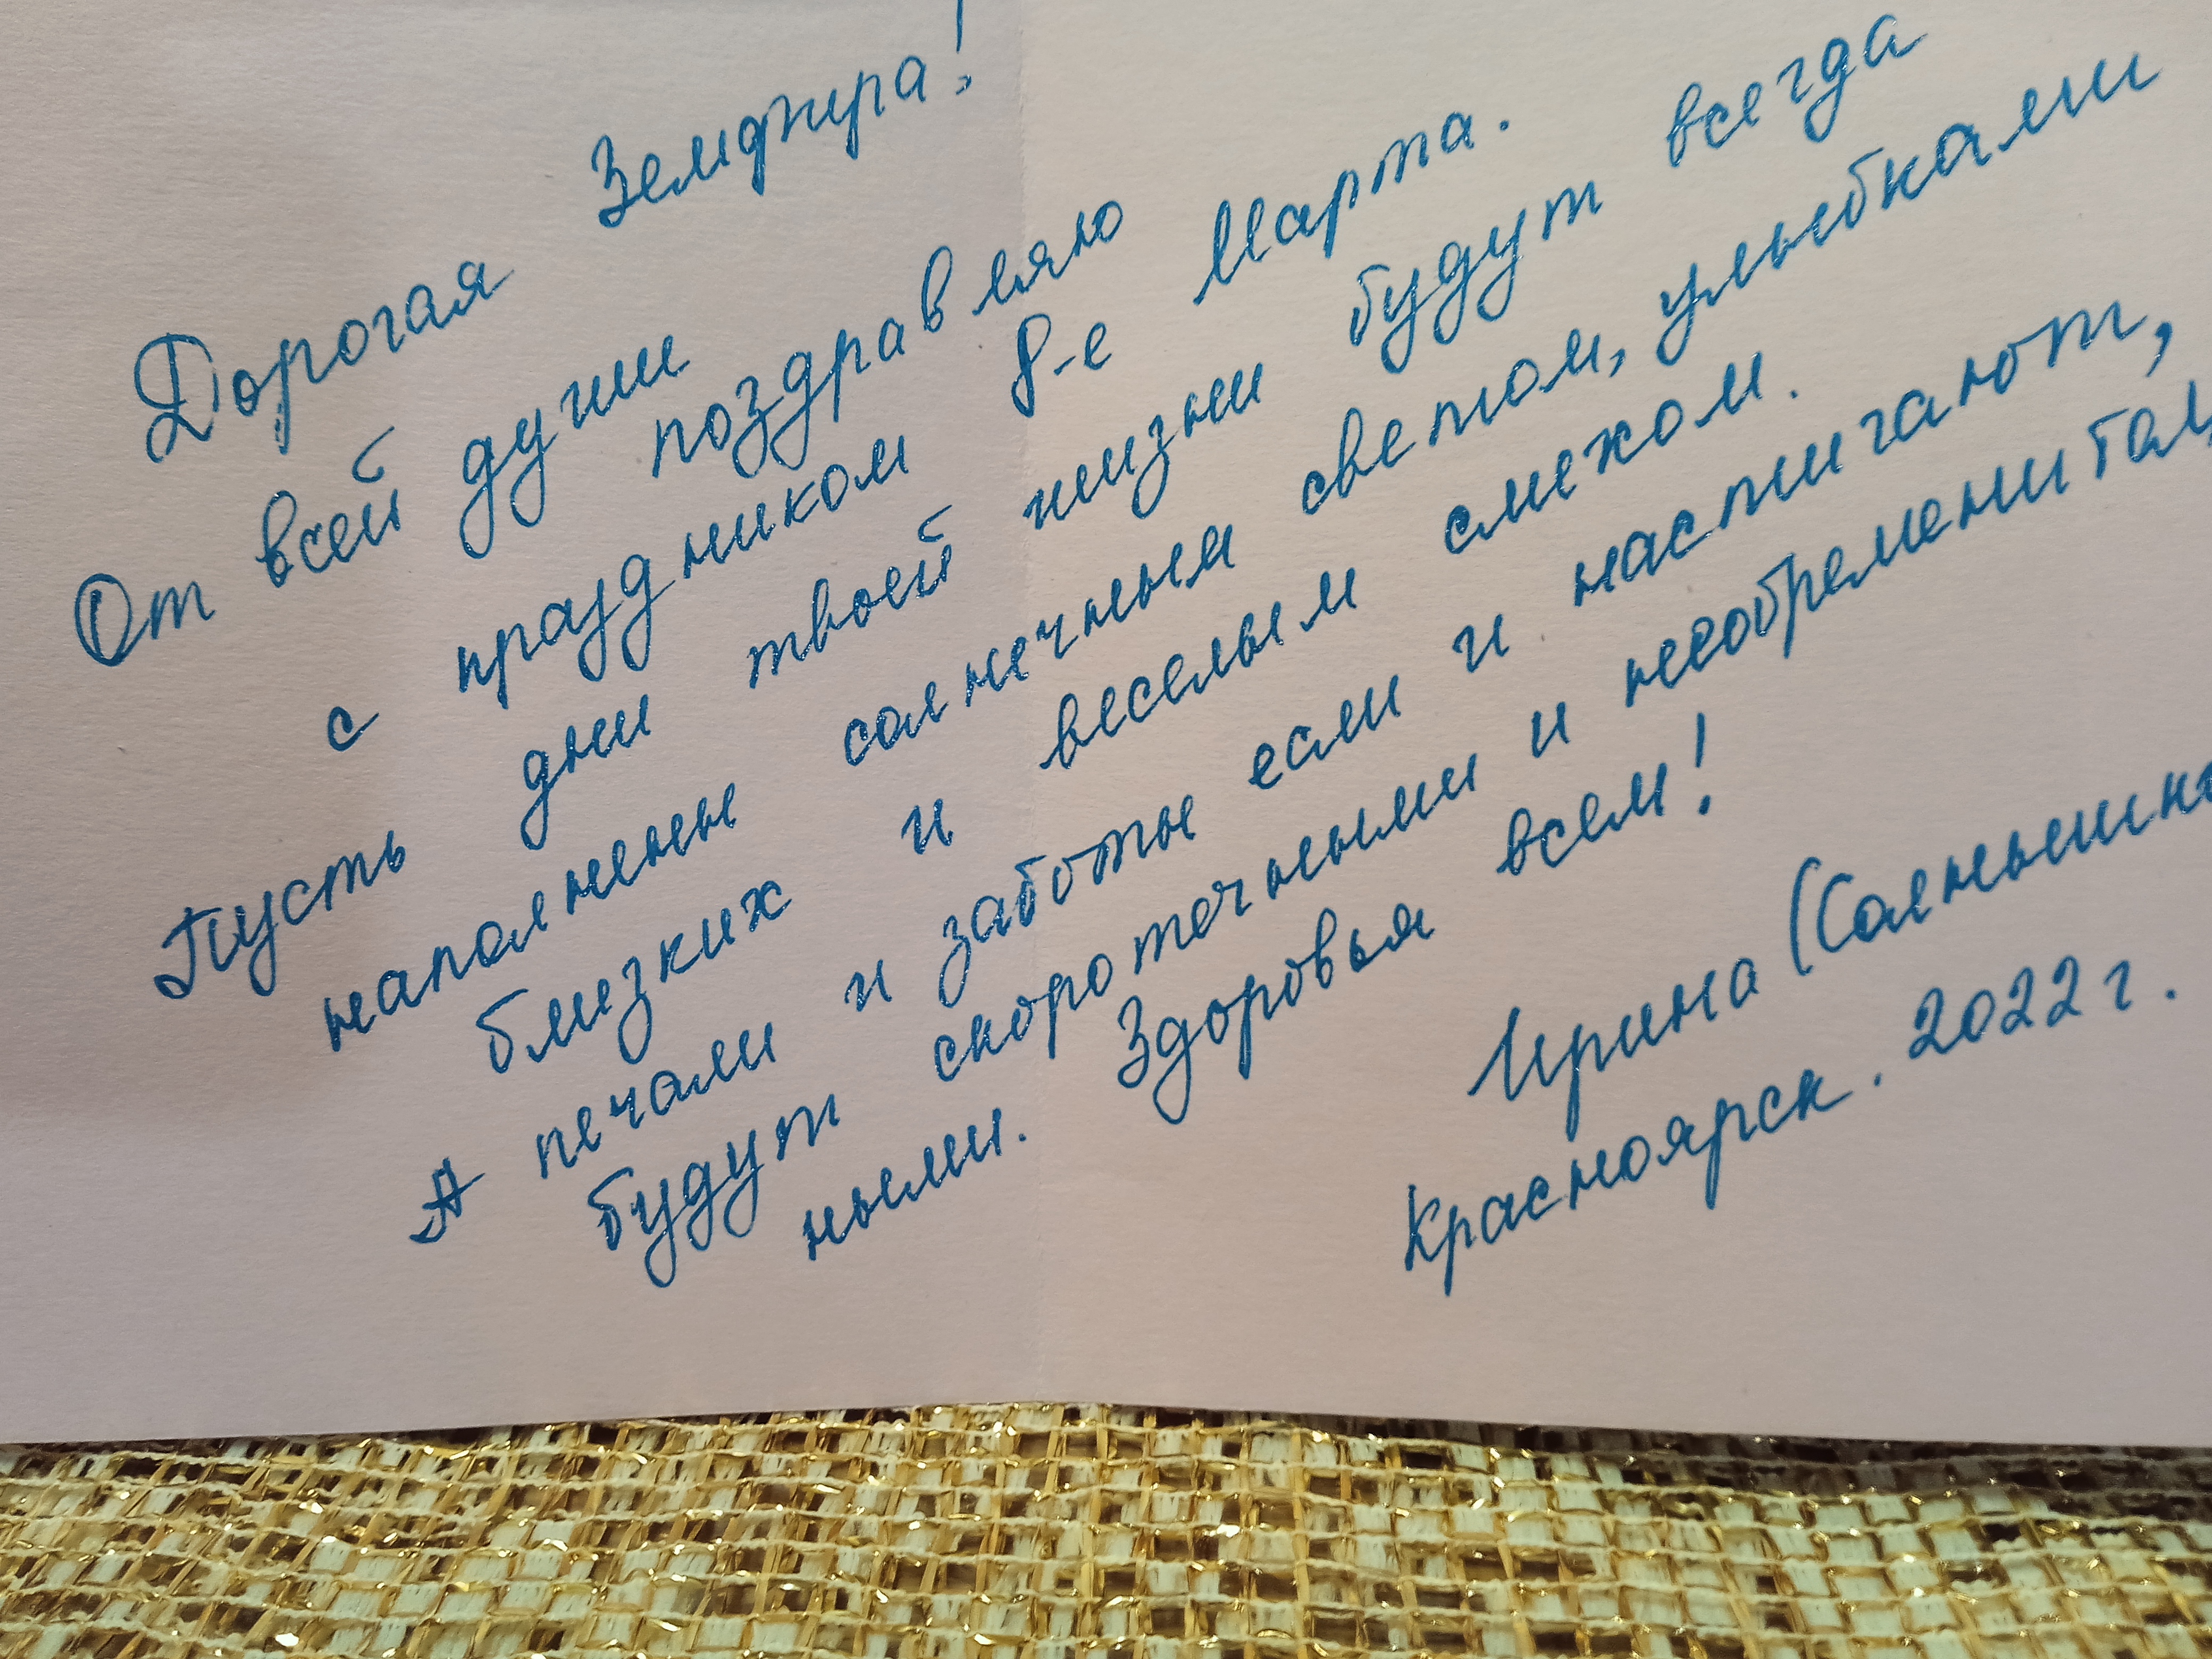 Дорогая Земфира!
От всей души поздравляю
с праздником 8-е Марта.
Пусть дни твоей жизни будут всегда
наполнены солнечным светом, улыбками
близких и веселым смехом.
А печали и заботы если и настигают,
будут скоротечными и необременитель
ными. Здоровья всем!
Ирина (Солнышко
Красноярск. 2022 г.